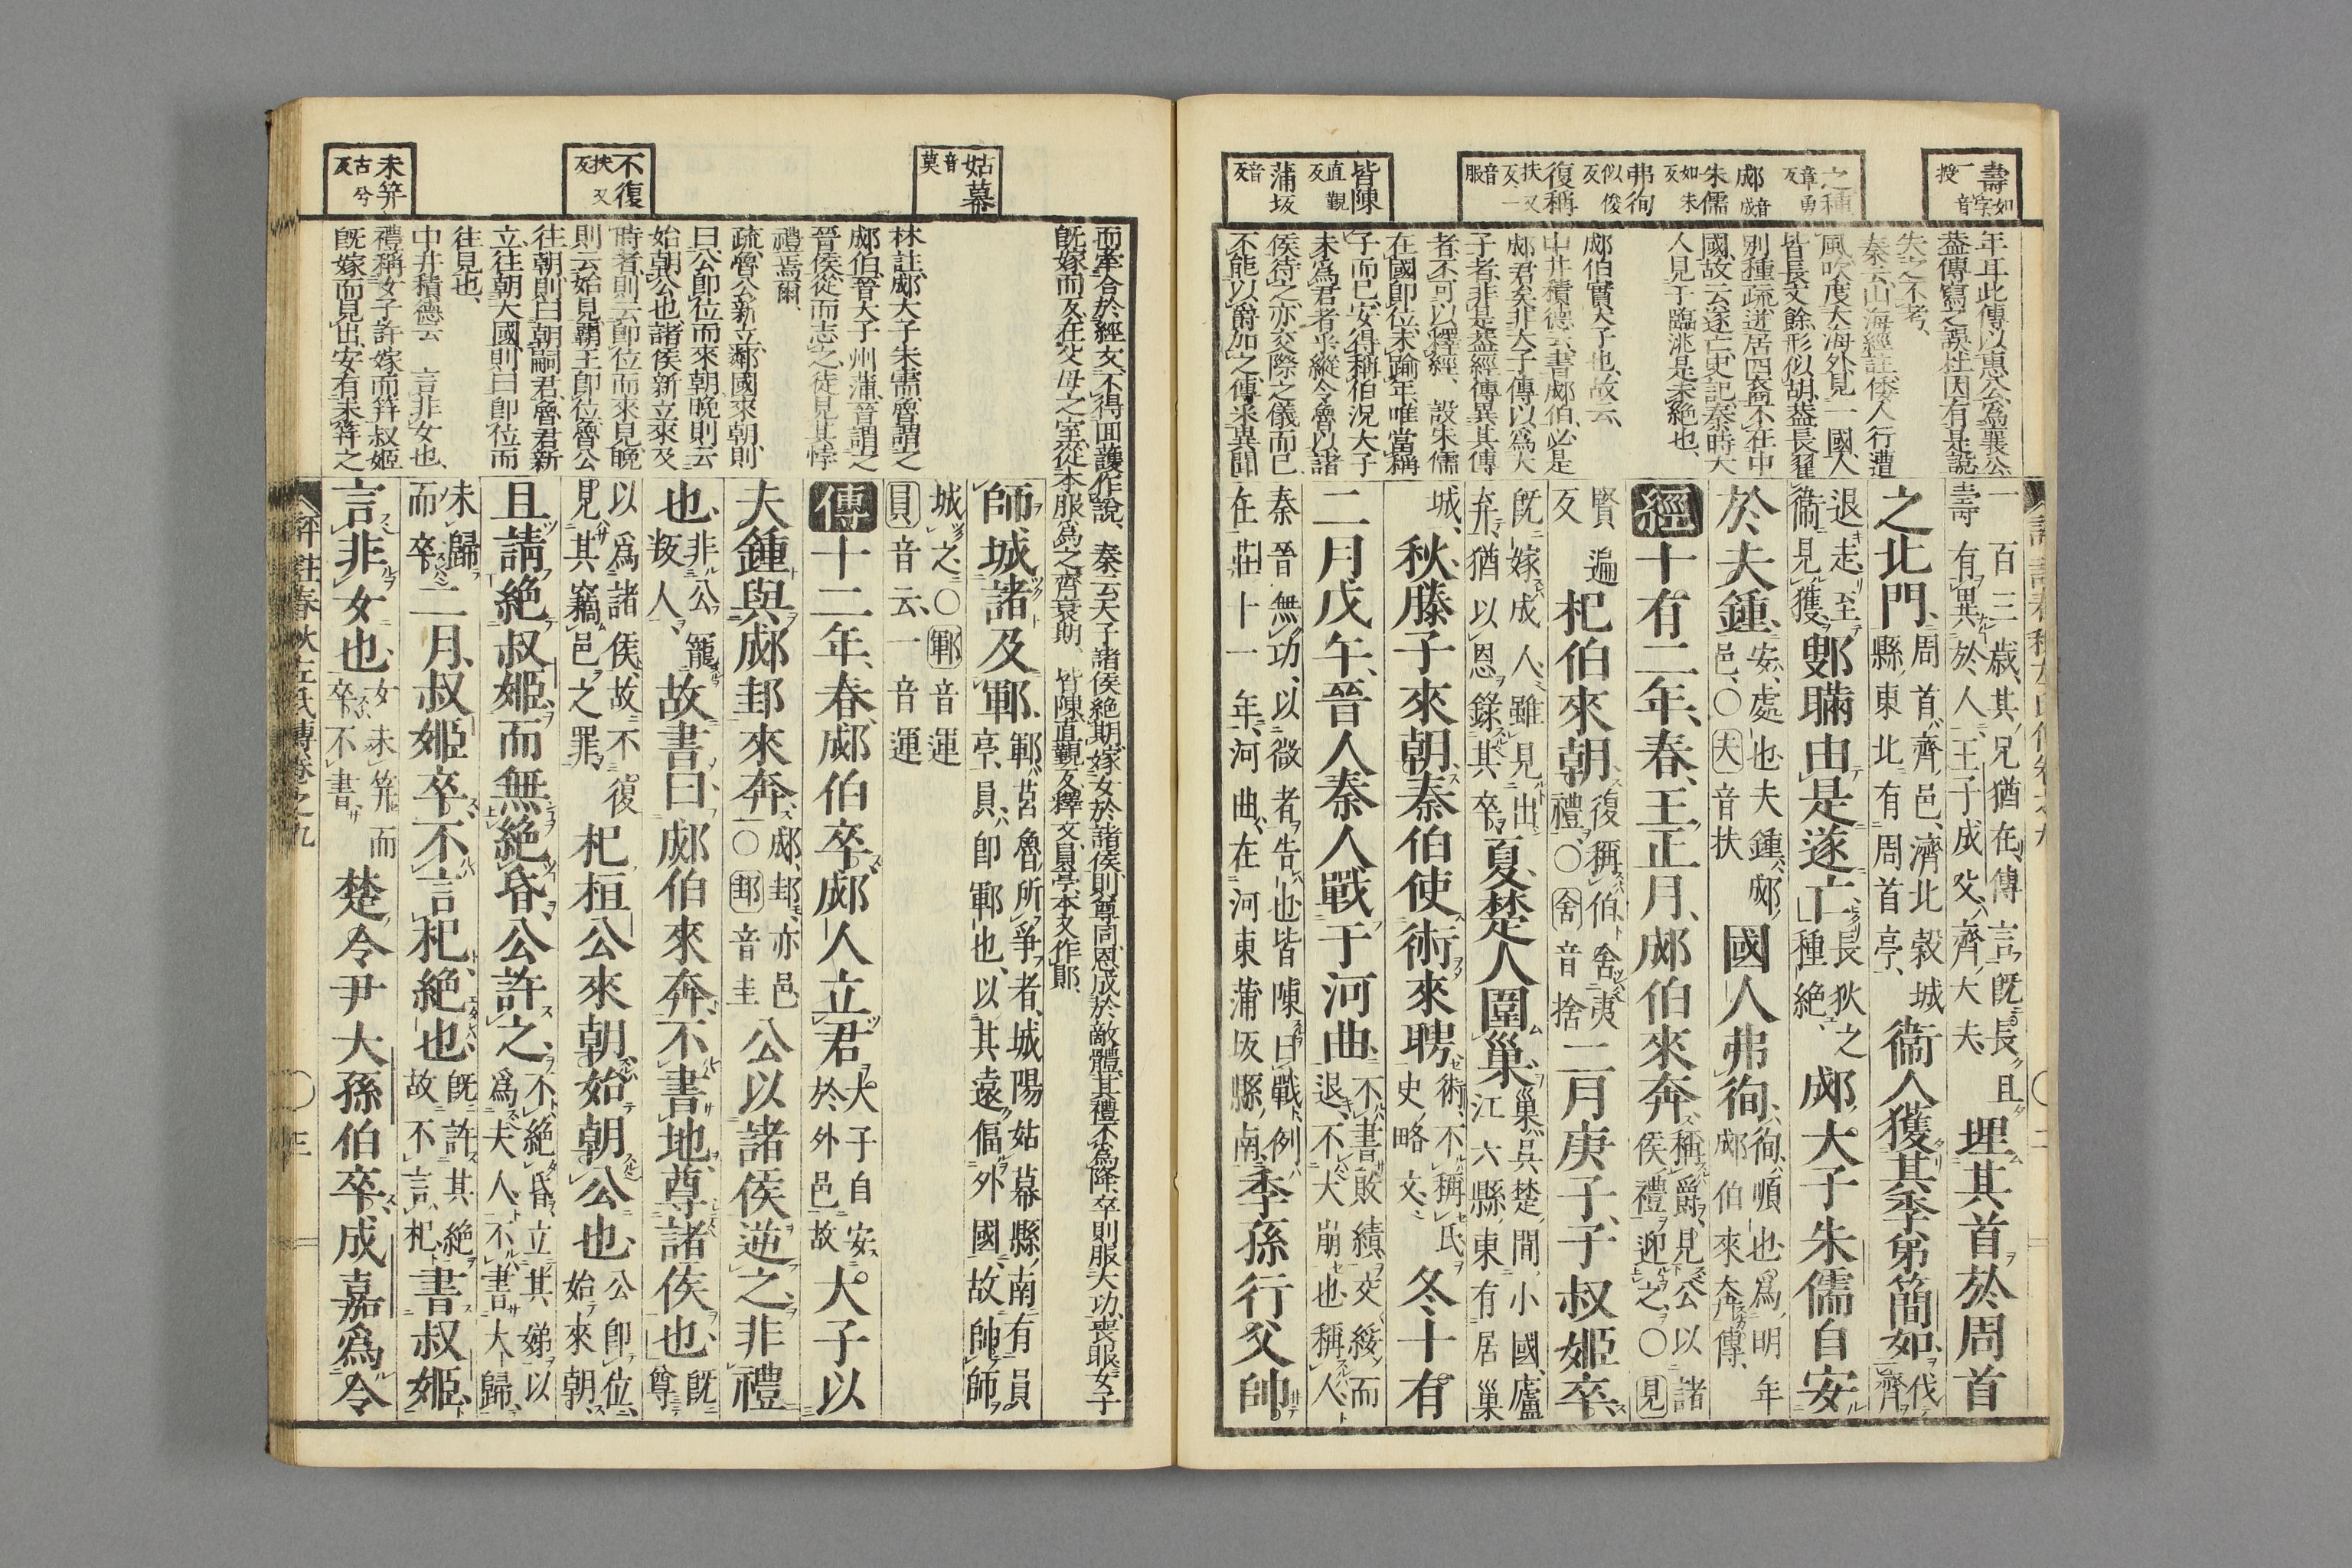 壽如字一音授
之種章勇反
郕音成
朱儒如朱反
弗徇似俊反
復稱扶又反一音服
皆陳直覲反
蒲坂音反
年耳此傳以惠公爲襄公
蓋傳寫之誤杜因有是說
失之不考
秦云山海經註倭人行遭
風吹度大海外見一國人
皆長丈餘形似胡蓋長翟
別種疏迸居四裔不在中
國故云遂亡史記秦時大
人見于臨洮是未絶也
郕伯實大子也故云
中井積德云書郕伯必是
郕君矣非大子傳以爲大
子者非是蓋經傳異其傳
者不可以釋經 設朱儒
在國即位未踰年唯當稱
子而已安得稱伯況大子
未爲君者乎縱令魯以諸
侯待之亦交際之儀而已
不能以爵加之傳釆異聞
一百三歳其兄猶在傳言既長且
壽有異於人王子成父齊大夫
埋其首於周首
之北門
周首齊邑濟北穀城
縣東北有周首亭
衞人獲其季弟簡如
伐齊
退走至
衞見獲
鄋瞞由是遂亡
長狄之
種絶
郕大子朱儒自安
於夫鍾
安處也夫鍾郕
邑○大音扶
國人弗徇
徇順也爲明年
郕伯來奔傳
經十有二年春王正月郕伯來奔
稱爵見公以諸
侯禮迎之○見
賢遍
反
杞伯來朝
復稱伯舍夷
禮○舍音捨
二月庚子子叔姬卒
既嫁成人雖見出
弃猶以恩錄其卒
夏楚人圍巢
巢呉楚間小國廬
江六縣東有居巢
城
秋滕子來朝秦伯使術來聘
術不稱氏
史略文
冬十有
二月戊午晉人秦人戰于河曲
不書敗績交綏而
退不大崩也稱人
秦晉無功以微者告也皆陳曰戰例
在莊十一年河曲在河東蒲坂縣南
季孫行父帥
姑幕音莫
不復扶又反
未笄古兮反
而牽合於經文不得回護作說 秦云天子諸侯絶期嫁女於諸侯則尊同恩成於敵體其禮不爲降卒則服大功喪服女子
既嫁而反在父母之室從本服爲之齊衰期 皆陳直覲反釋文員亭本又作鄖
林註郕大子朱儒魯謂之
郕伯晉大子州蒲晉謂之
晉侯從而志之徒見其悖
禮焉爾
疏魯公新立鄰國來朝則
曰公即位而來朝晚則云
始朝公也諸侯新立來及
時者則云即位而來見晚
則云始見霸王即位魯公
往朝則曰朝嗣君魯君新
立往朝大國則曰即位而
往見也
中井積德云 言非女也
禮稱女子許嫁而笄叔姬
既嫁而見出安有未笄之
師城諸及鄆
鄆莒魯所爭者城陽姑幕縣南有員
亭員即鄆也以其遠偪外國故帥師
城之○鄆音運
員音云一音運
傳十二年春郕伯卒郕人立君
大子自安
於外邑故
大子以
夫鍾與郕邽來奔
郕邽亦邑
○邽音圭
公以諸侯逆之非禮
也
非公寵
叛人
故書曰郕伯來奔不書地尊諸侯也
既尊
以爲諸侯故不復
見其竊邑之罪
杞桓公來朝始朝公也
公即位
始來朝
且請絶叔姬而無絶昏公許之
不絶昏立其娣以
爲夫人不書大歸
未歸
而卒
二月叔姬卒不言杞絶也
既許其絶
故不言杞
書叔姬
言非女也
女未笄而
卒不書
楚令尹大孫伯卒成嘉爲令
評註春秋左氏傳卷之九
○三